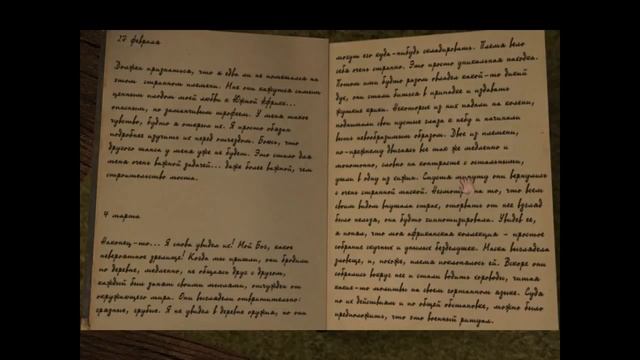 27 февраля
Должен признаться, что я едва ли не помешался на
этом странном племени. Мне они кажутся самым
ценным плодом моей любви к Южной Африке...
опасным, но заманчивым трофеем. У меня такое
чувство, будто я отерял их. Я просто обязан
подробнее изучить их перед отъездом. Боюсь, что
другого шанса у меня уже не будет. Это стало для
меня очень важной задачей... даже более важной, чем
строительство моста.
4 марта
Наконец-то... Я снова увидел их! Мой Бог, какое
невероятное зрелище! Когда мы пришли, они бродили
по деревне, медленно, не общаясь друг с другом,
каждый был занят своими мыслями, отчужден от
окружающего мира. Они выглядели отвратительно:
грязные, грубые. Я не увидел в деревне оружия, но они
могут его куда-нибудь складировать. Племя вело
себя очень странно. Это просто уникальная находка.
Потом ими будто разом овладел какой-то дикий
дух, они стали биться в припадке и издавать
жуткие крики. Некоторые из них падали на колени,
поднимали свои пустые глаза к небу и начинали
выть невообразимым образом. Двое из племени,
по-прежнему двигаясь все так же медленно и
монотонно, словно на контрасте с остальными,
ушли в одну из хижин. Спустя минуту они вернулись
с очень странной маской. Несмотря на то, что всем
своим видом внушала страх, оторвать от нее взгляд
было нельзя, она будто гипнотизировала. Увидев ее,
я понял, что моя африканская коллекция - простое
собрание скучных и унылых безделушек. Маска выглядела
зловеще, и, похоже, племя поклонялось ей. Вскоре они
собрались вокруг нее и стали водить хороводы, читая
какие-то молитвы на своем гортанном языке. Судя
по их действиям и по общей обстановке, можно было
предположить, что это военный ритуал.